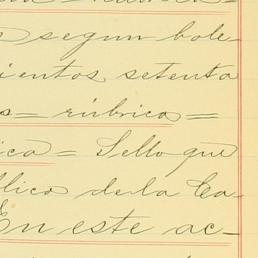 segun bole-
ientos setenta
s = rúbrica =
ica = Sello que
blico de la Ca-
En este ac-